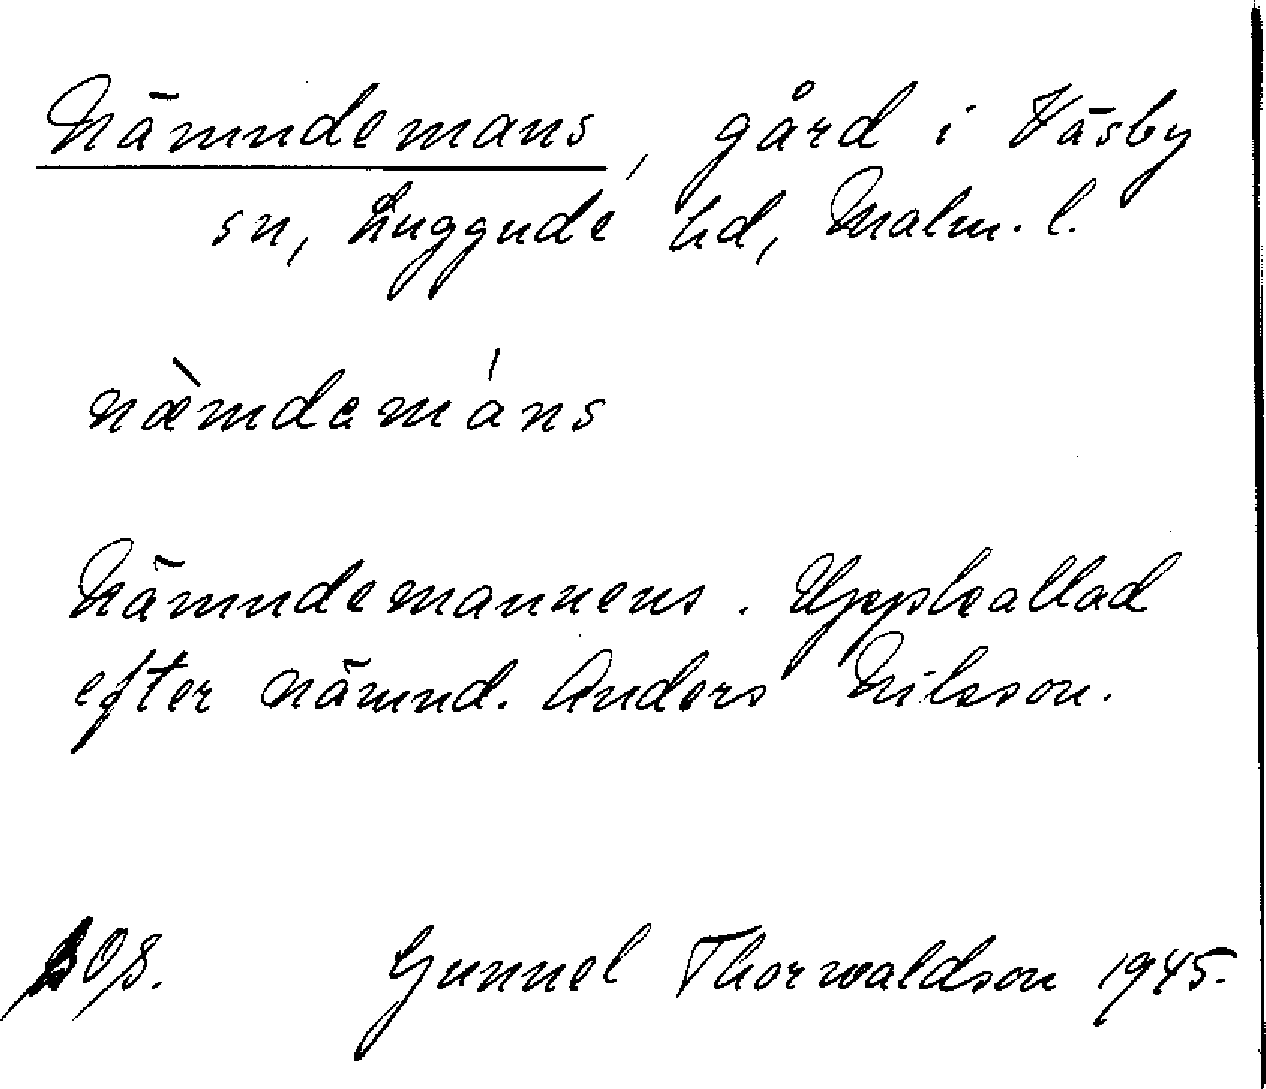 Nämndemans, gård i Väsby
sn, Luggude hd, Malm. l.
næ̀mdemáns
Nämndemannens. Uppkallad
efter nämnd. Anders Nilsson.
Gunnel Thorwaldson 1945.